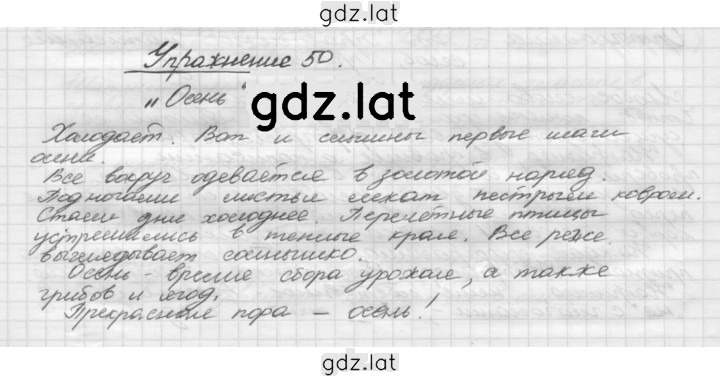 gdz.lat
Упражнение 50.
„Осень"
gdz.lat
Холодает. Вот и слышны первые шаги
осени.
Все вокруг одевается в золотой наряд.
Под ногами листья лежат пестрым ковром.
Стали дни холоднее. Перелетные птицы
устремились в теплые края. Все реже
выглядывает солнышко.
Осень - время сбора урожая, а также
грибов и ягод.
Прекрасная пора - осень!
gdz.lat